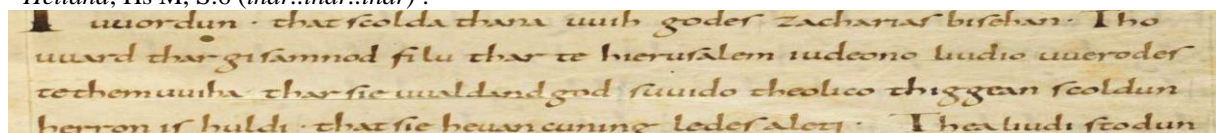 Heliand, Hs M, S.6 (thar..thar..thar) :
uuordun · that scolda thana uuih godes zacharias bisehan · Tho
uuard thar gisamnod filu thar te hierusalem iudeono liudio uuerodes
te them uuiha thar sie uualdand god suuido theolico thiggean scoldun
herron is huldi · that sie hevancuning ledes aleti · Thea liudi stodun